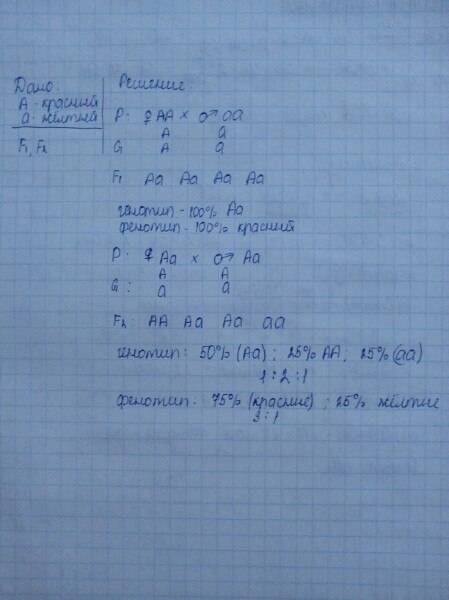 Дано:
А - красный
а - жёлтый
F1, F2
Решение:
P: ♀ AA × ♂ aa
A a
G A a
F1 Aa Aa Aa Aa
генотип - 100% Aa
фенотип - 100% красний
P: ♀ Aa × ♂ Aa
A A
G: a a
F2: AA Aa Aa aa
генотип: 50% (Aa) ; 25% AA; 25% (aa)
1 : 2 : 1
фенотип: 75% (красние) ; 25% жёлтие
3 : 1